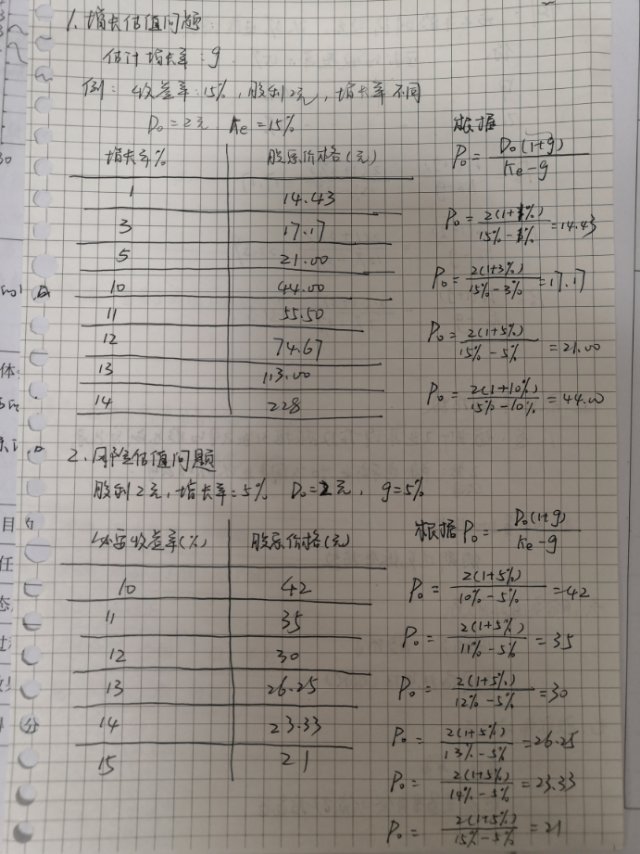 1、增长估值问题:
估计增长率:g
例: 收益率:15%,股利2元,增长率不同
D₀=2元 Ke=15%
根据
P₀ = D₀(1+g) / Ke-g
增长率% 股票价格(元)
1 14.43
3 17.17
5 21.00
10 44.00
11 55.50
12 74.67
13 113.00
14 228
P₀ = 2(1+1%) / 15%-1% = 14.43
P₀ = 2(1+3%) / 15%-3% = 17.17
P₀ = 2(1+5%) / 15%-5% = 21.00
P₀ = 2(1+10%) / 15%-10% = 44.00
2、风险估值问题
股利2元,增长率:5% D₀=2元, g=5%
必要收益率(%) 股票价格(元)
10 42
11 35
12 30
13 26.25
14 23.33
15 21
根据 P₀ = D₀(1+g) / Ke-g
P₀ = 2(1+5%) / 10%-5% = 42
P₀ = 2(1+5%) / 11%-5% = 35
P₀ = 2(1+5%) / 12%-5% = 30
P₀ = 2(1+5%) / 13%-5% = 26.25
P₀ = 2(1+5%) / 14%-5% = 23.33
P₀ = 2(1+5%) / 15%-5% = 21
体
目
任
态
分